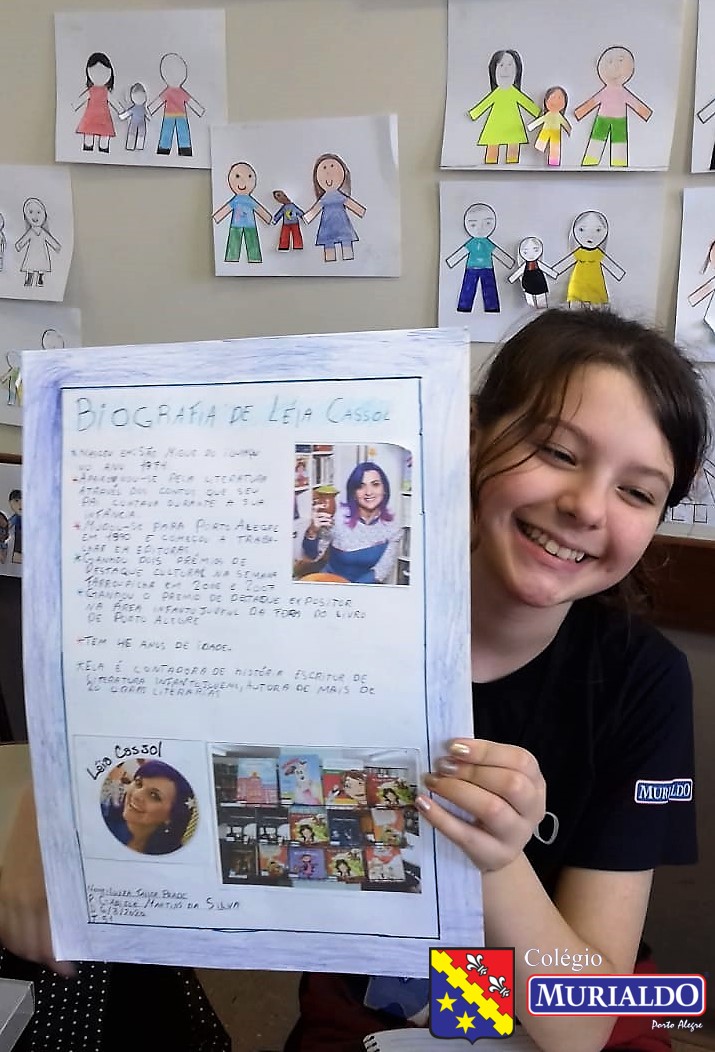 BIOGRAFIA DE LÉIA CASSOL
* NASCEU EM SÃO MIGUEL DO
NO ANO 1974
* APAIXONOU-SE PELA LITERATURA
ATRAVÉS DOS CONTOS QUE SEU
PAI CONTAVA DURANTE A SUA
INFÂNCIA
* MUDOU-SE PARA PORTO ALEGRE
EM 1990 E COMEÇOU A TRABA-
LHAR EM EDITORAS
* GANHOU DOIS PRÊMIOS DE
DESTAQUE CULTURAL NA SEMANA
FARROUPILHA EM 2006 E 2007
* GANHOU O PREMIO DE DETAQUE EXPOSITOR
NA ÁREA INFANTOJUVENIL DA FEIRA DO LIVRO
DE PORTO ALEGRE
* TEM 45 ANOS DE IDADE.
* ELA É CONTADORA DE HISTÓRIA ESCRITOR DE
LITERATURA INFANTOJUVENIL, AUTORA DE MAIS DE
20 OBRAS LITERÁRIAS
Léia Cassol
P: GABIELE MARTINS DA SILVA
T 51
MURIALDO
Colégio
MURIALDO
Porto Alegre